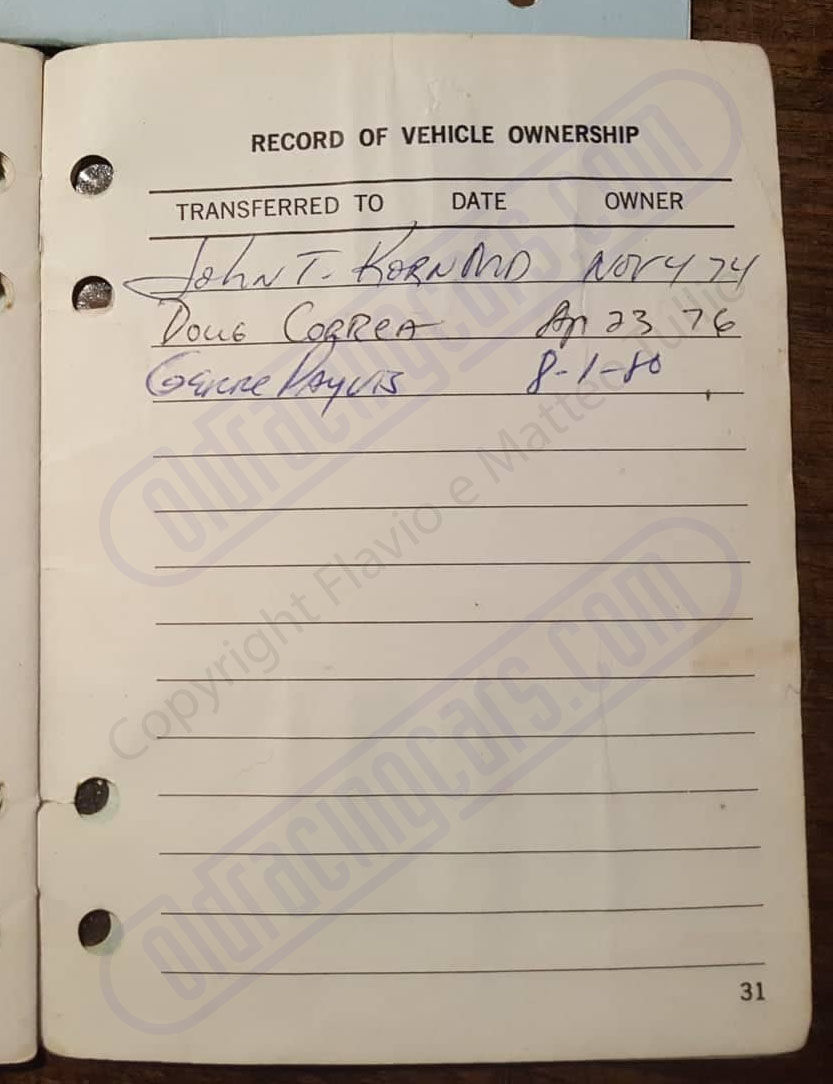 RECORD OF VEHICLE OWNERSHIP
TRANSFERRED TO DATE OWNER
John T. Korn MD Nov 4 74
Doug Correa Ap 23 76
8-1-80
31
oldracingcars.com
Copyright Flavio e Matteo Jullio
oldracingcars.com
oldracingcars.com